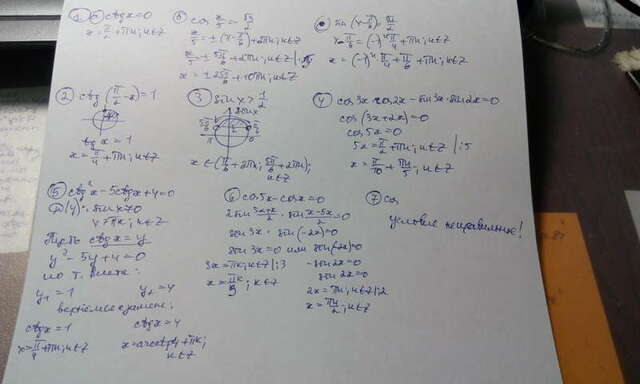 ① а) ctgx=0
x=π/2+πn; n∈Z
б) cos x/5 = -√3/2
x/5=±(π-π/6)+2πn; n∈Z
x/5=±5π/6+2πn; n∈Z |·5
x=±25π/6+10πn; n∈Z
в) sin(x-π/6)=√2/2
x-π/6=(-1)ⁿπ/4+πn; n∈Z
x=(-1)ⁿπ/4+π/6+πn; n∈Z
② ctg(π/2-x)=1
tgx=1
x=π/4+πn; n∈Z
③ sinx>1/2
sinx
5π/6
π/6
π
0
x∈(π/6+2πn; 5π/6+2πn);
n∈Z
④ cos3x·cos2x-sin3x·sin2x=0
cos(3x+2x)=0
cos5x=0
5x=π/2+πn; n∈Z |:5
x=π/10+πn/5; n∈Z
⑤ ctg²x-5ctgx+4=0
D(y): sinx≠0
x≠πk; k∈Z
Пусть ctgx=y
y²-5y+4=0
по т. Виета:
y₁=1 y₂=4
вернёмся к замене:
ctgx=1 ctgx=4
x=π/4+πn; n∈Z x=arcctg4+πk;
k∈Z
⑥ cos5x-cosx=0
2sin (5x+x)/2 · sin (x-5x)/2=0
sin3x · sin(-2x)=0
sin3x=0 или sin(-2x)=0
3x=πk; k∈Z |:3 -sin2x=0
x=πk/3; k∈Z sin2x=0
2x=πn; n∈Z |:2
x=πn/2; n∈Z
⑦ cos
условие неправильное!